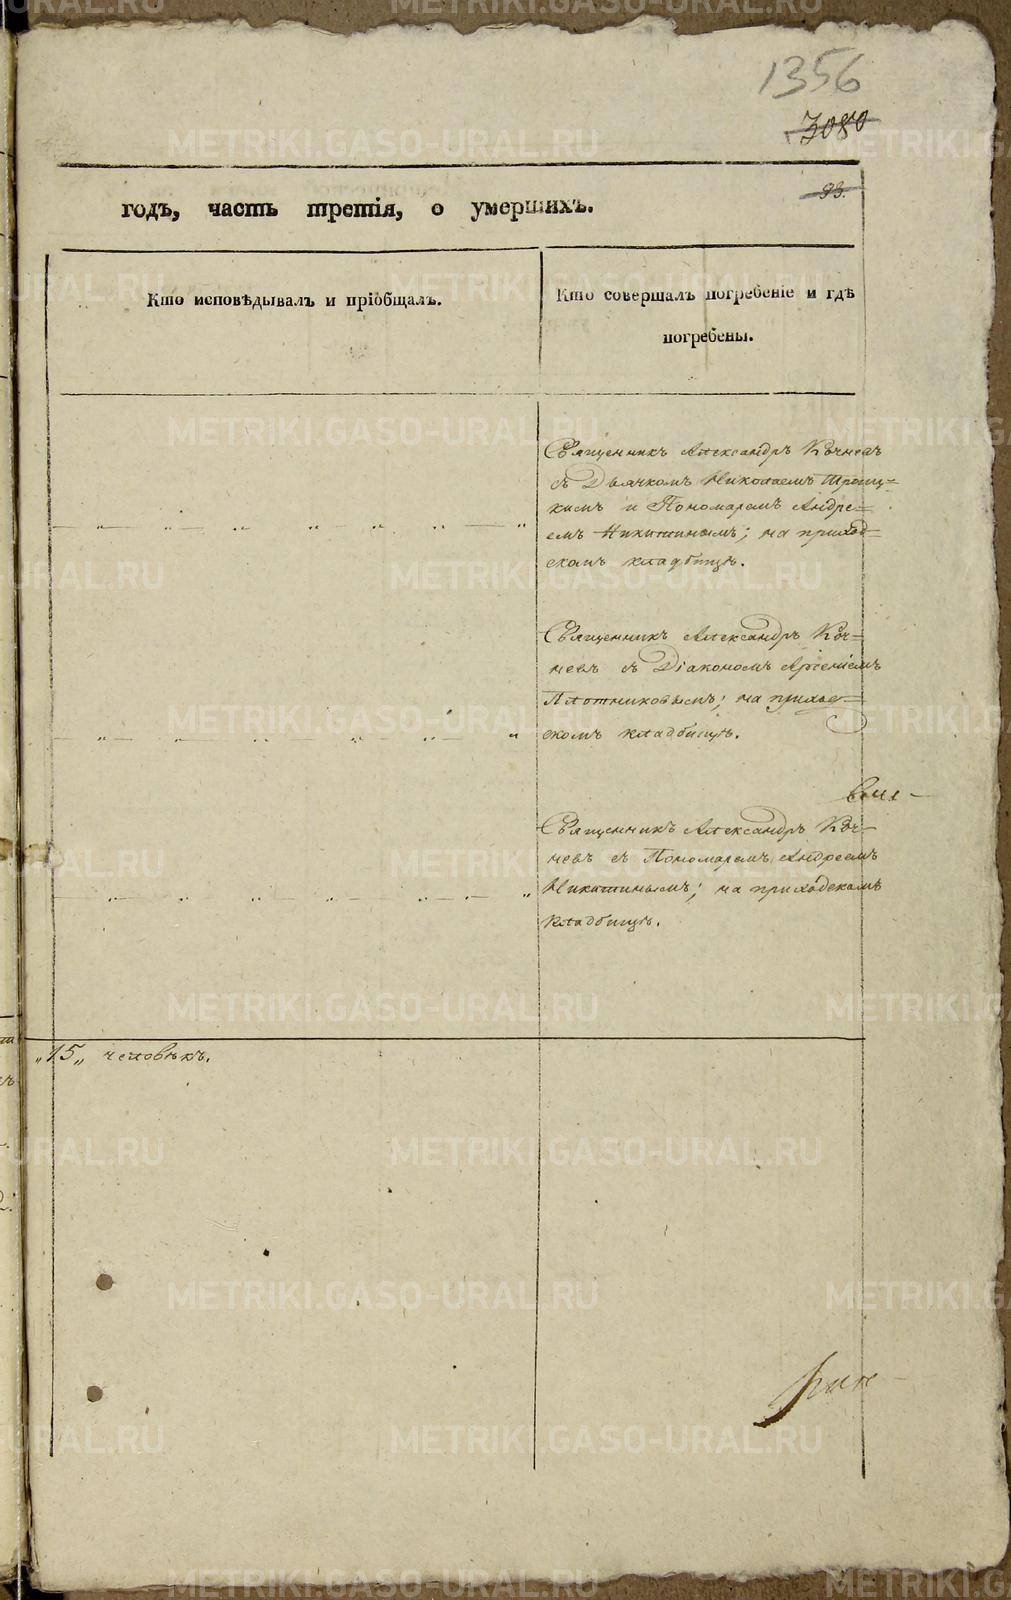 1356
3080
93.
годъ, часть третія, о умершихъ.
Кто исповѣдывалъ и пріобщалъ.
Кто совершалъ погребеніе и гдѣ
погребены.
Священникъ Александръ Кочневъ
съ Дьячкомъ Николаемъ Троиц=
кимъ и Пономаремъ Андре=
емъ Никитинымъ; на приход=
скомъ кладбищѣ.
Священникъ Александръ Коч=
невъ съ Діакономъ Арсеніемъ
Плотниковымъ; на приход=
скомъ кладбищѣ.
Священникъ Александръ Коч=
невъ съ Пономаремъ Андреемъ
Никитинымъ; на приходскомъ
кладбищѣ.
„15„ человѣкъ.
METRIKI.GASO-URAL.RU